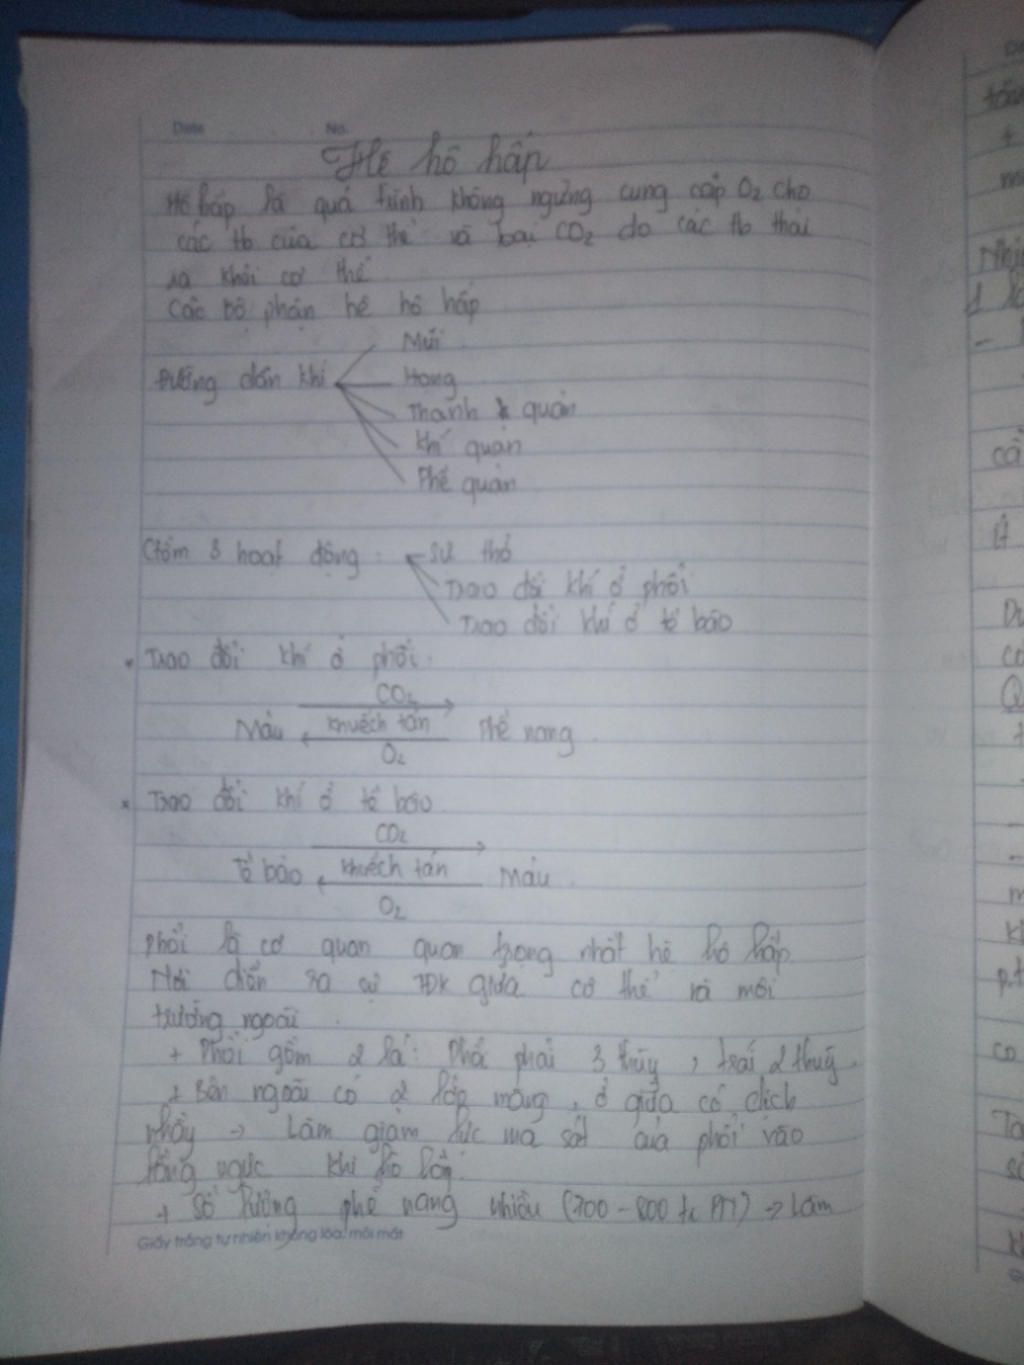 Date No.
Hệ hô hấp
Hô hấp là quá trình không ngừng cung cấp O₂ cho
các tb của cơ thể và loại CO₂ do các tb thải
ra khỏi cơ thể
Các bộ phận hệ hô hấp
Đường dẫn khí
Mũi
Họng
Thanh quản
Khí quản
Phế quản
Gồm 3 hoạt động :
Sự thở
Trao đổi khí ở phổi
Trao đổi khí ở tế bào
* Trao đổi khí ở phổi.
CO₂
Máu khuếch tán Phế nang
O₂
* Trao đổi khí ở tế bào
CO₂
Tế bào khuếch tán Máu
O₂
phổi là cơ quan quan trọng nhất hệ hô hấp
Nơi diễn ra sự TĐK giữa cơ thể và môi
trường ngoài
+ Phổi gồm 2 lá: Phổi phải 3 thùy, trái 2 thùy
+ Bên ngoài có 2 lớp màng, ở giữa có dịch
nhầy → Làm giảm lực ma sát của phổi vào
lồng ngực khi hô hấp
+ Số lượng phế nang nhiều (700 - 800 tr PN) → Làm
Giấy trắng tự nhiên không lóa, mỏi mắt